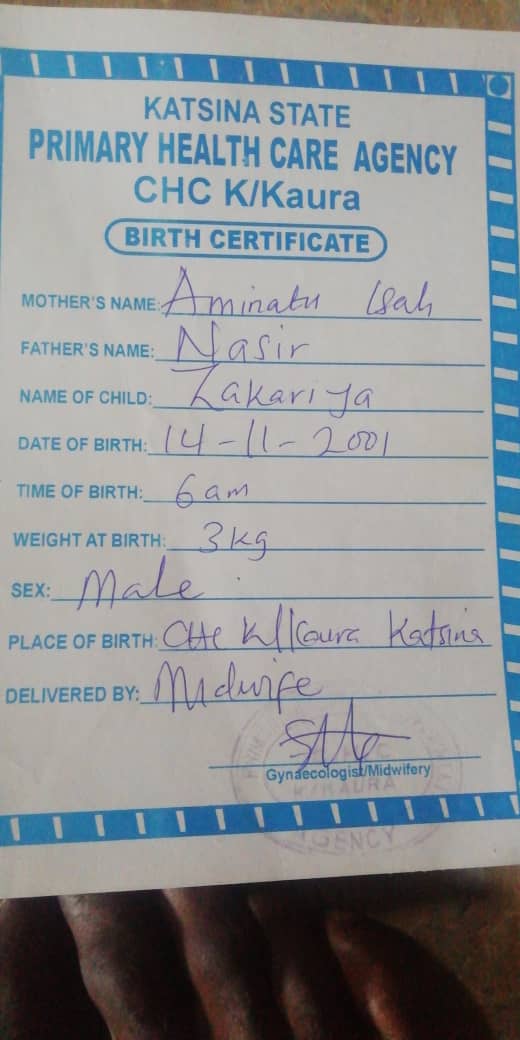 KATSINA STATE
PRIMARY HEALTH CARE AGENCY
CHC K/Kaura
BIRTH CERTIFICATE
MOTHER'S NAME: Aminatu Isah
FATHER'S NAME: Nasir
NAME OF CHILD: Zakariya
DATE OF BIRTH: 14-11-2001
TIME OF BIRTH: 6am
WEIGHT AT BIRTH: 3kg
SEX: Male
PLACE OF BIRTH: CHC K/Kaura Katsina
DELIVERED BY: Midwife
Gynaecologist/Midwifery
K/KAURA
AGENCY